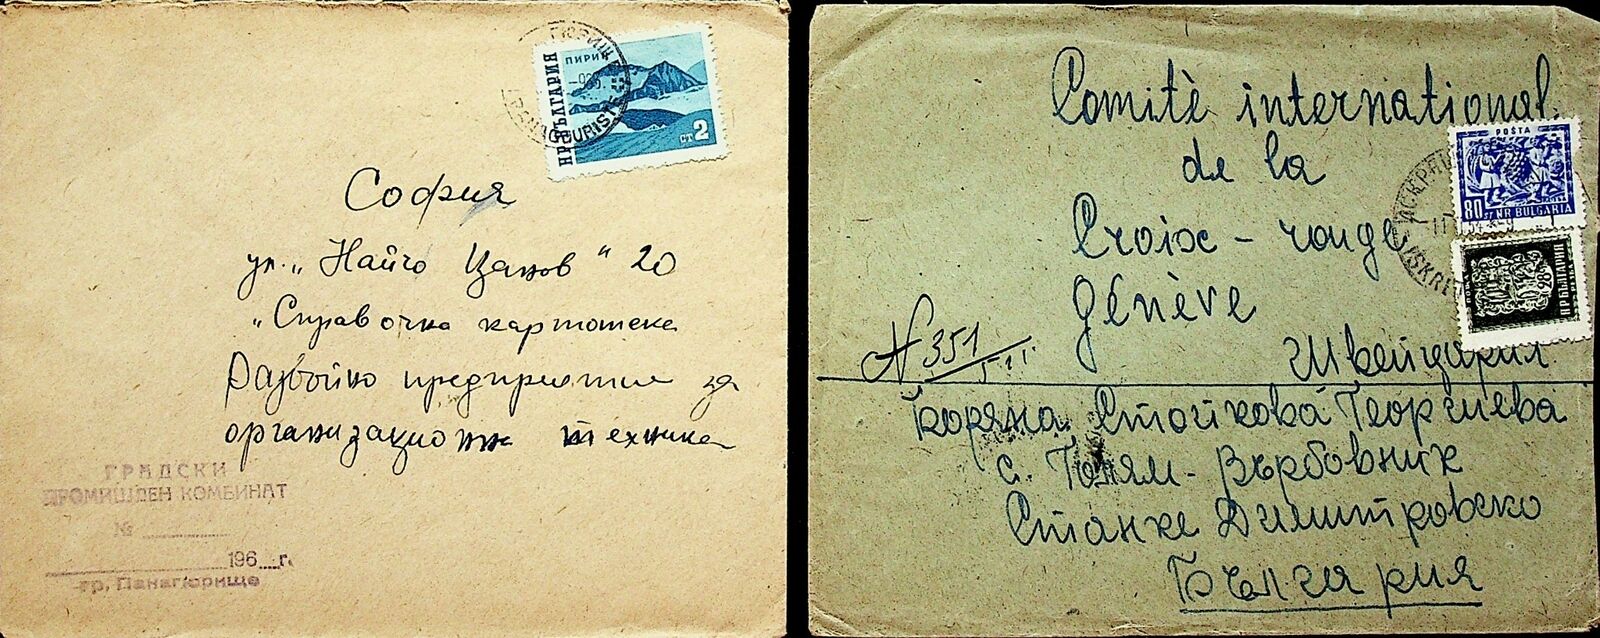 НР БЪЛГАРИЯ
ПИРИН
СТ 2
PANAGURISTE
София
ул. „Найчо Цанов" 20
„Справочна картотека
Развойно предприятие за
организационна техника
ГРАДСКИ
ПРОМИШЛЕН КОМБИНАТ
№
196 г.
гр. Панагюрище
Comitè international
de la
Croix - rouge
Génève
Швейцария
N 351
Боряна Стойкова Георгиева
с. Голям - Върбовник
Станке Димитровско
България
POŠTA
80 ST NR BULGARIA
28
П Р БЪЛГАРИЯ